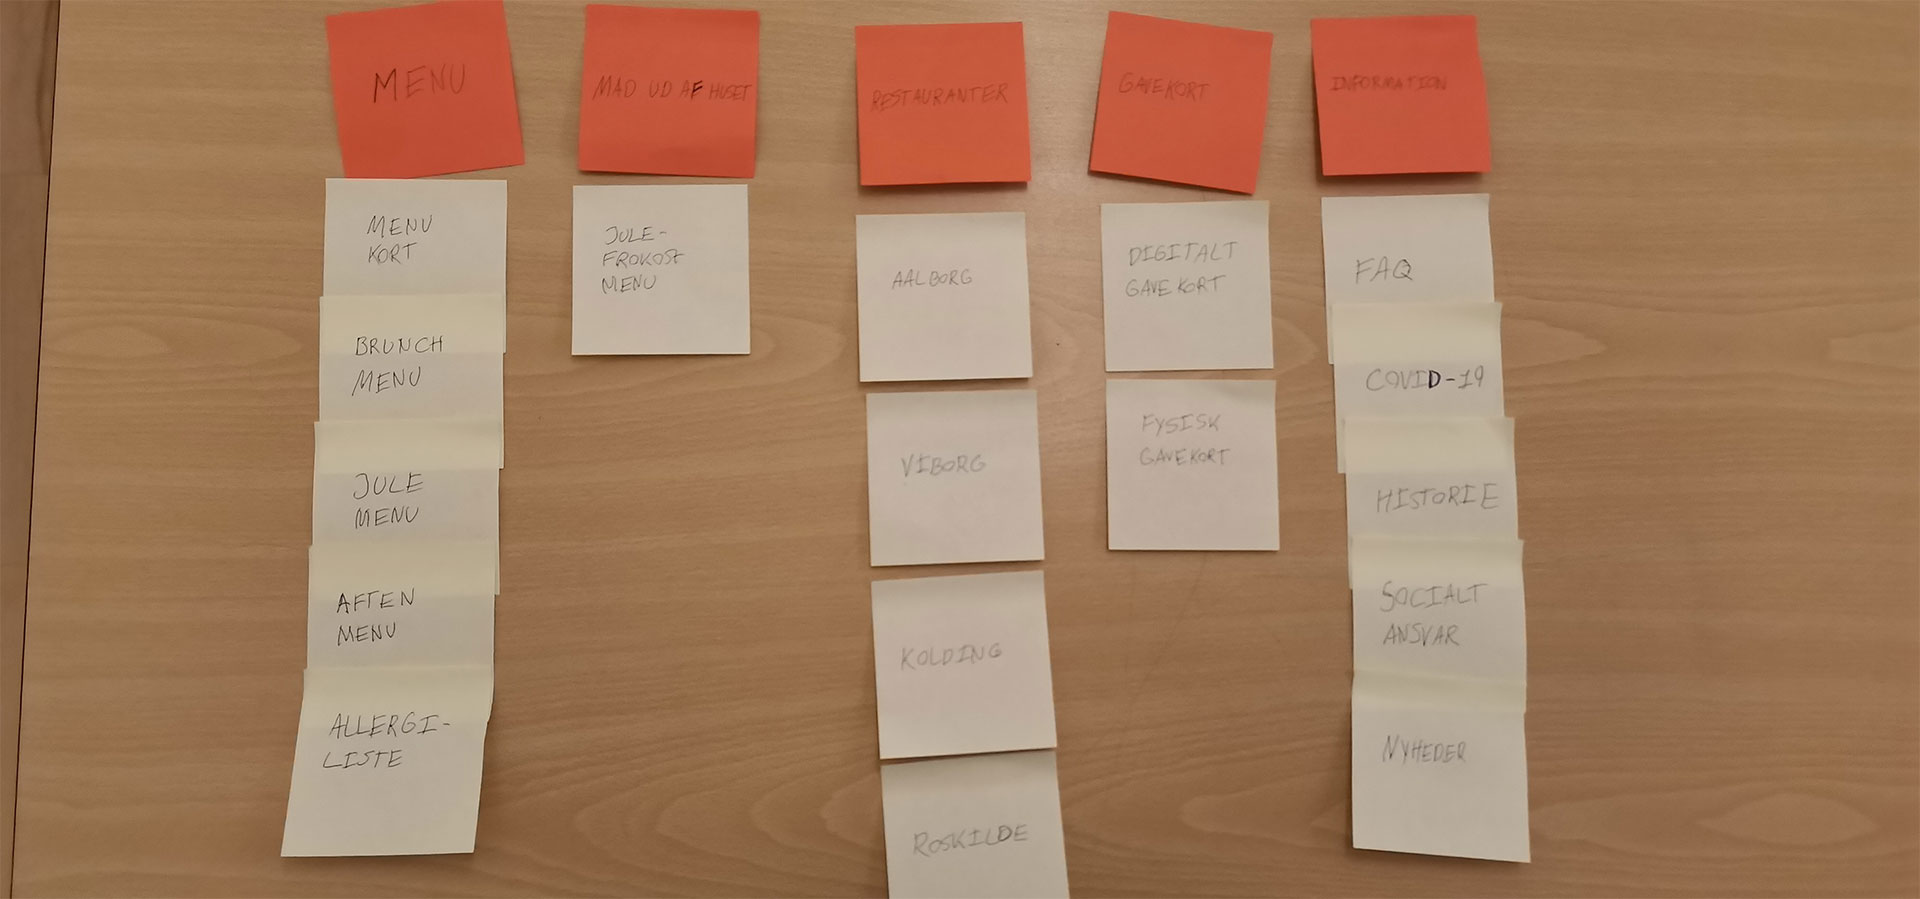 MENU
MENU
KORT
BRUNCH
MENU
JULE
MENU
AFTEN
MENU
ALLERGI-
LISTE
MAD UD AF HUSET
JULE-
FROKOST
MENU
RESTAURANTER
AALBORG
VIBORG
KOLDING
ROSKILDE
GAVEKORT
DIGITALT
GAVEKORT
FYSISK
GAVEKORT
INFORMATION
FAQ
COVID-19
HISTORIE
SOCIALT
ANSVAR
NYHEDER